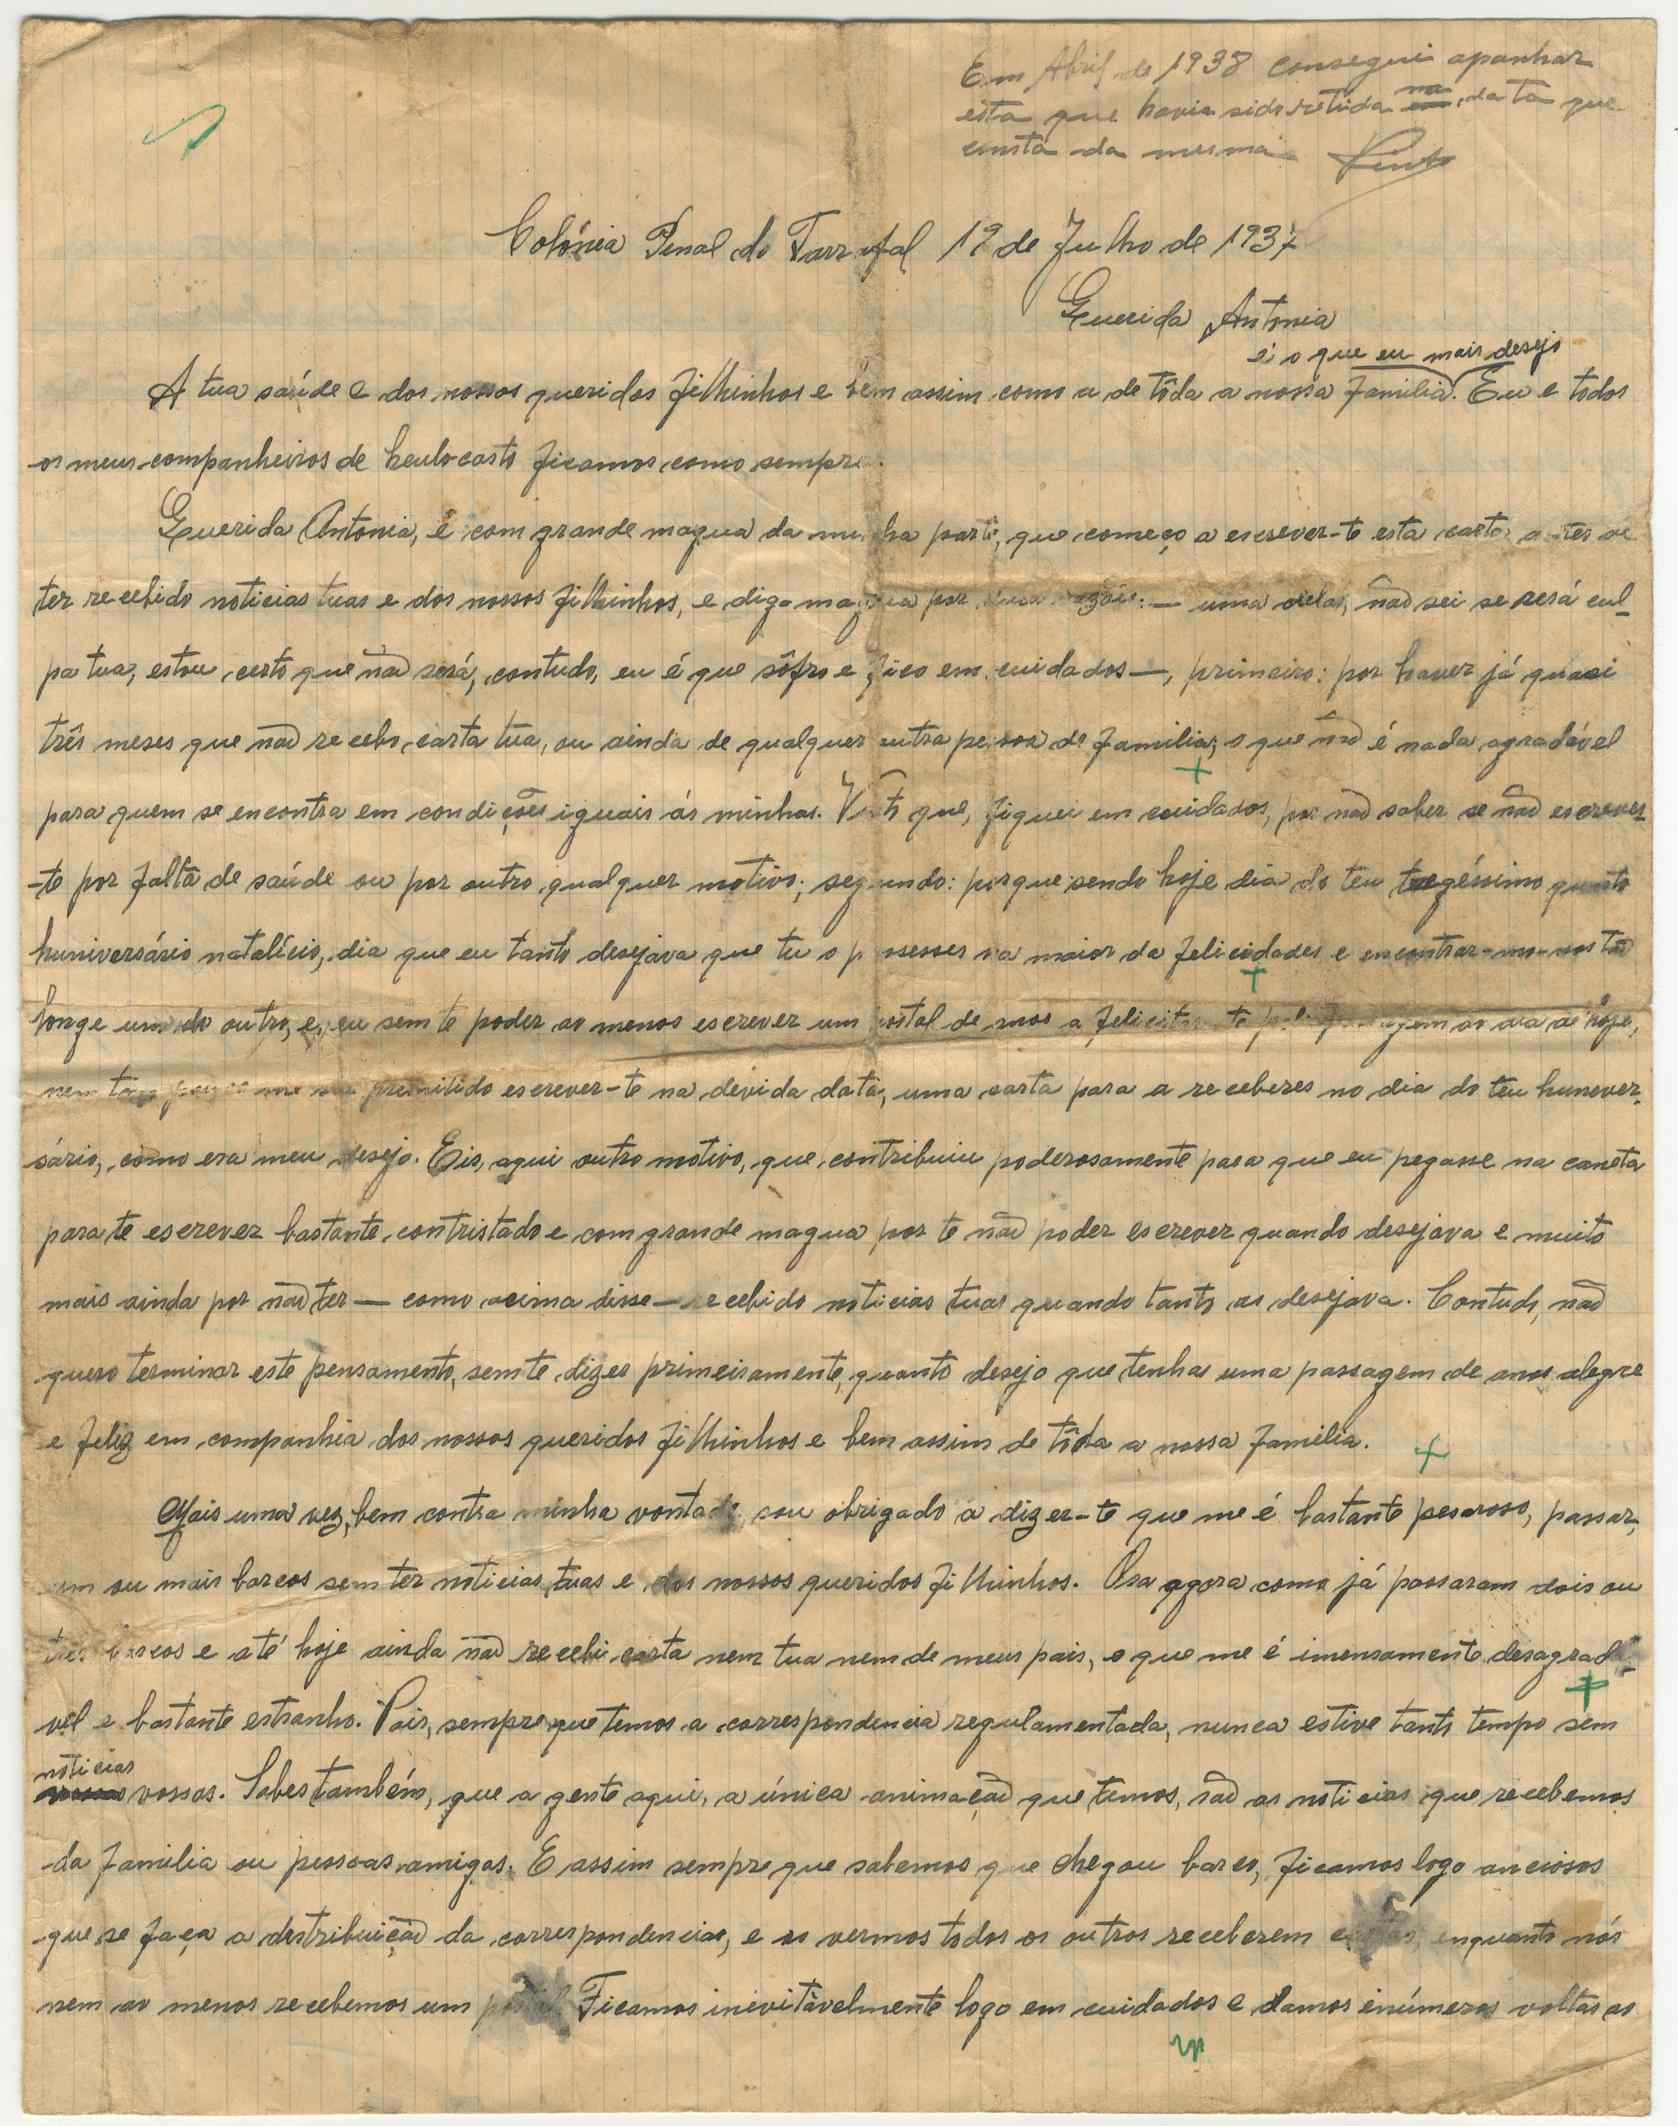 Em Abril de 1938 consegui apanhar
esta que havia sido retida na data que
consta da mesma
Colónia Penal do Tarrafal 19 de Julho de 1937
Querida Antonia
é o que eu mais desejo
A tua saúde e dos nossos queridos filhinhos e bem assim como a de tôda a nossa familia. Eu e todos
os meus companheiros de heulocasto ficamos como sempre.
Querida Antonia, é com grande magua da minha parte, que começo a escrever-te esta carta
ter recebido noticias tuas e dos nossos filhinhos, e digo magua por :— uma delas, não sei se será cul-
pa tua, estou certo que não será, contudo, eu é que sôfro e fico em cuidados —, primeiro: por haver já quasi
três meses que não recebo carta tua, ou ainda de qualquer outra pessoa de familia, o que não é nada agradável
para quem se encontra em condições iguais ás minhas. Visto que, fiquei em cuidados, por não saber se não escrever-
-te por falta de saúde ou por outro qualquer motivo; segundo: porque sendo hoje dia do teu tregéssimo
huniversário natalício, dia que eu tanto desejava que tu o passesses na maior da felicidades e encontrar-mo-nos tão
longe um do outro, e, eu sem te poder ao menos escrever um postal de anos a felicitar-te ao dia de hoje,
nem tão pouco me ser premitido escrever-te na devida data, uma carta para a receberes no dia do teu hunever-
sário, como era meu desejo. Eis, aqui outro motivo, que contribuiu poderosamente para que eu pegasse na caneta
para te escrever bastante contristado e com grande magua por te não poder escrever quando desejava e muito
mais ainda por não ter — como acima disse — recebido noticias tuas quando tanto as desejava. Contudo, não
quero terminar este pensamento, sem te dizer primeiramente, quanto desejo que tenhas uma passagem de anos alegre
e feliz em companhia dos nossos queridos filhinhos e bem assim de tôda a nossa familia.
Mais uma vez, bem contra minha vontade, sou obrigado a dizer-te que me é bastante pesaroso, passar,
um ou mais barcos sem ter noticias tuas e dos nossos queridos filhinhos. Ora agora como já passaram dois ou
três barcos e até hoje ainda não recebi carta nem tua nem de meus pais, o que me é imensamente desagradá-
vel e bastante estranho. Pois, sempre que temos a correspondencia regulamentada, nunca estive tanto tempo sem
noticias
vossas. Sabes também, que a gente aqui, a única animação que temos, são as noticias que recebemos
da familia ou pessoas amigas. E assim sempre que sabemos que chegou barco, ficamos logo anciosos
que se faça a destribuição da correspondencia, e ao vermos todos os outros receberem cartas, enquanto nós
nem ao menos recebemos um postal. Ficamos inevitàvelmente logo em cuidados e damos inúmeras voltas ao